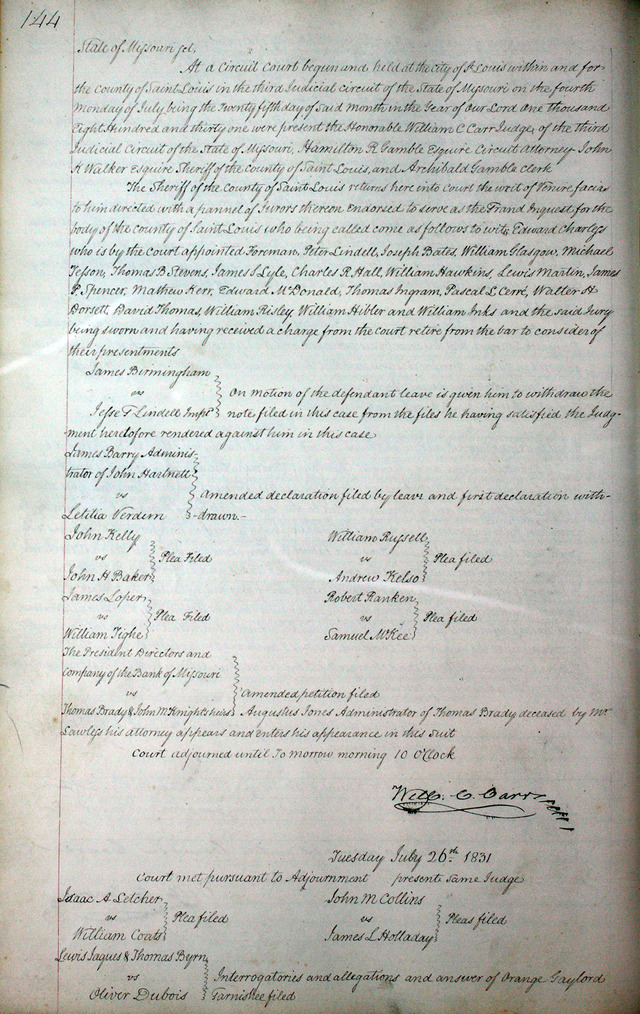 144
State of Missouri sct.
At a Circuit Court begun and held at the City of St Louis within and for
the County of Saint Louis in the third Judicial circuit of the State of Missouri on the fourth
Monday of July being the Twenty fifth day of Said Month in the Year of Our Lord One Thousand
Eight Hundred and thirty one were present the Honorable William C Carr Judge, of the third
Judicial Circuit of the State of Missouri, Hamilton R Gamble Esquire Circuit Attorney John
K Walker Esquire Sheriff of the County of Saint Louis, and Archibald Gamble clerk
The Sheriff of the County of Saint Louis returns here into Court the writ of Venire facias
to him directed with a pannel of Jurors thereon Endorsed to serve as the Grand Inquest for the
body of the county of Saint Louis who being called come as follows to wit; Edward Charless
who is by the court appointed Foreman, Peter Lindell, Joseph Bates, William Glasgow, Michael
Tesson, Thomas B Stevens, James S Lyle, Charles R Hall, William Hawkins, Lewis Martin, James
P. Spencer, Mathew Kerr, Edward McDonald, Thomas Ingram, Pascal L Cerré, Walter H
Dorsett, David Thomas, William Risley, William Hibler and William Inks and the said Jury
being sworn and having received a charge from the court retire from the bar to consider of
their presentments
James Birmingham
vs
Jesse G Lindell Impd
On motion of the defendant leave is given him to withdraw the
note filed in this case from the files he having satisfied the Judg-
ment heretofore rendered against him in this case
James Barry Adminis-
trator of John Hartnett
vs
Letitia Verdern
Amended declaration filed by leave and first declaration with-
drawn.-
John Kelly
vs
John H Baker
Plea Filed
William Russell
vs
Andrew Kelso
Plea filed
James Loper
vs
William Tighe
Plea Filed
Robert Ranken
vs
Samuel McKee
Plea filed
The President Directors and
Company of the Bank of Missouri
vs
Thomas Brady & John McKnights heirs
Amended petition filed
Augustus Jones Administrator of Thomas Brady deceased by Mr
Lawless his attorney appears and enters his appearance in this Suit
Court adjourned until To morrow morning 10 O'Clock
Will. C. Carr
Tuesday July 26th 1831
Court met pursuant to Adjournment present same Judge
Isaac A Letcher
vs
William Coats
Plea filed
John M Collins
vs
James L Holladay
Pleas filed
Lewis Jaques & Thomas Byrn
vs
Oliver Dubois
Interrogatories and allegations and answer of Orange Gaylord
Garnishee filed